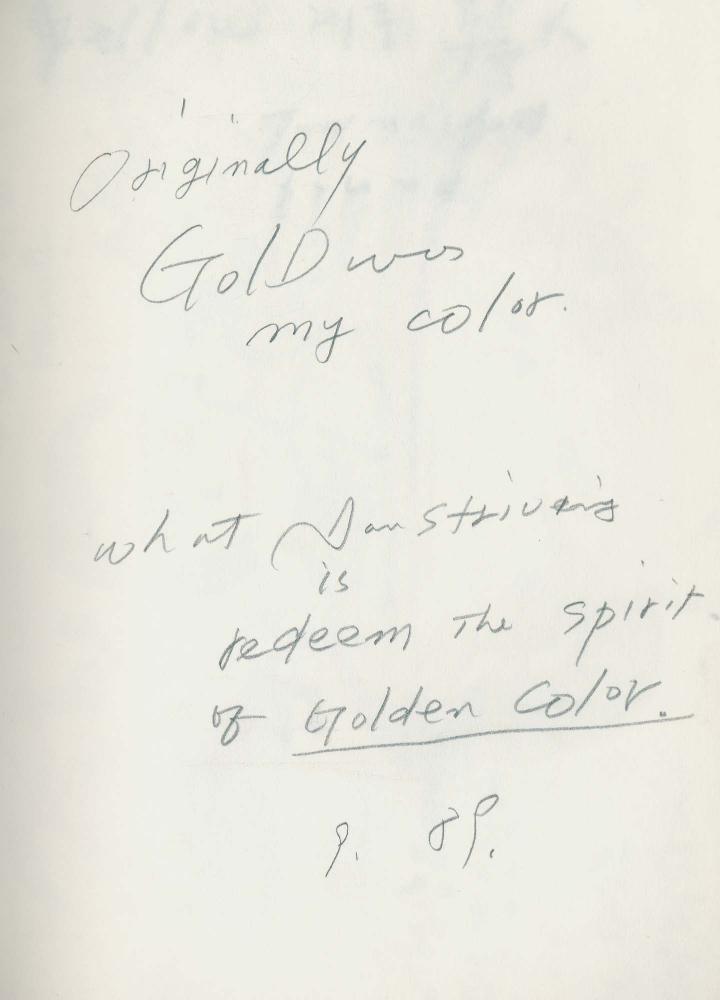 Originally
GolD was
my color.
what I am striving
is
redeem the spirit
of Golden Color.
9. 89.